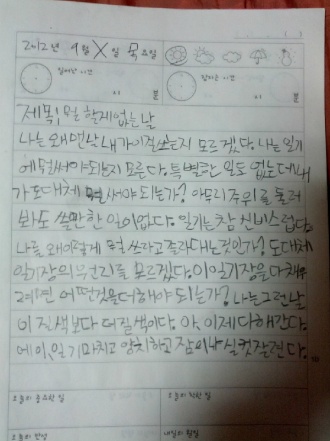 2012년 9월 X일 목요일
일어난 시각
시 분
잠자는 시각
시 분
제목: 뭘 할게 없는 날
나는 왜 맨날 내가 이걸 쓰는지 모르겠다. 나는 일기
에 뭘 써야 되는지 모른다. 특별한 일도 없는데 내
가 도대체 뭘 써야 되는가? 아무리 주위를 둘러
봐도 쓸만한 일이 없다. 일기는 참 신비스럽다.
나를 왜 이렇게 뭐 쓰라고 졸라대는 것인가? 도대체
일기장의 원리를 모르겠다. 이 일기장을 다 채
우려면 어떤것을 더해야 되는가? 나는 그런 날
이 질색보다 더 질색이다. 아, 이제 다 해간다.
에이, 일기 마치고 양치하고 잠이나 실컷 잘란다.
오늘의 중요한 일
오늘의 착한 일
오늘의 반성
내일의 할일